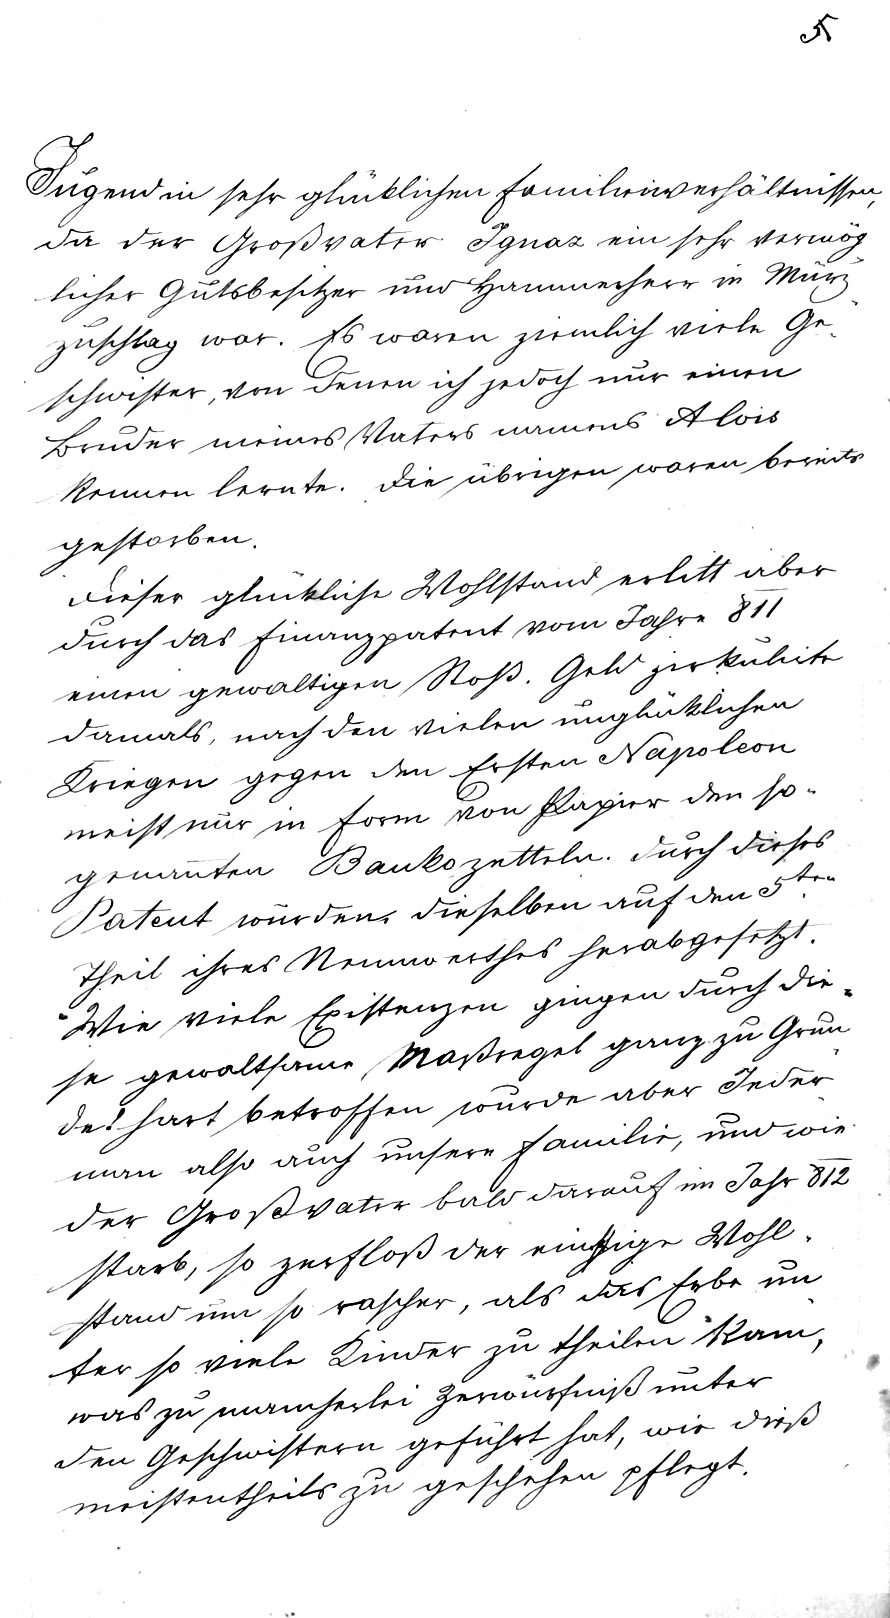 5
Jugend in sehr glücklichen Familienverhältnissen,
da der Großvater Ignaz ein sehr vermög
licher Gutsbesitzer und Hammerherr in Mürz
zuschlag war. Es waren ziemlich viele Ge-
schwister, von denen ich jedoch nur einen
Bruder meines Vaters namens Alois
kennen lernte. Die übrigen waren bereits
gestorben.
Dieser glückliche Wohlstand erlitt aber
durch das Finanzpatent vom Jahre 811
einen gewaltigen Stoß. Geld zirkulirte
damals, nach den vielen unglücklichen
Kriegen gegen den Ersten Napoleon
meist nur in Form von Papier den so-
genannten Bankozetteln. Durch dieses
Patent wurden dieselben auf den 5ten
Theil ihres Nennwerthes herabgesetzt.
Wie viele Existenzen gingen durch die-
se gewaltsame Maßregel ganz zu Grun
de! hart betroffen wurde aber Jeder
man also auch unsere Familie, und wie
der Großvater bald darauf im Jahr 812
starb, so zerfloß der einstige Wohl-
stand um so rascher, als das Erbe un
ter so viele Kinder zu theilen kam,
was zu mancherlei Zerwürfniß unter
den Geschwistern geführt hat, wie dieß
meistentheils zu geschehen pflegt.